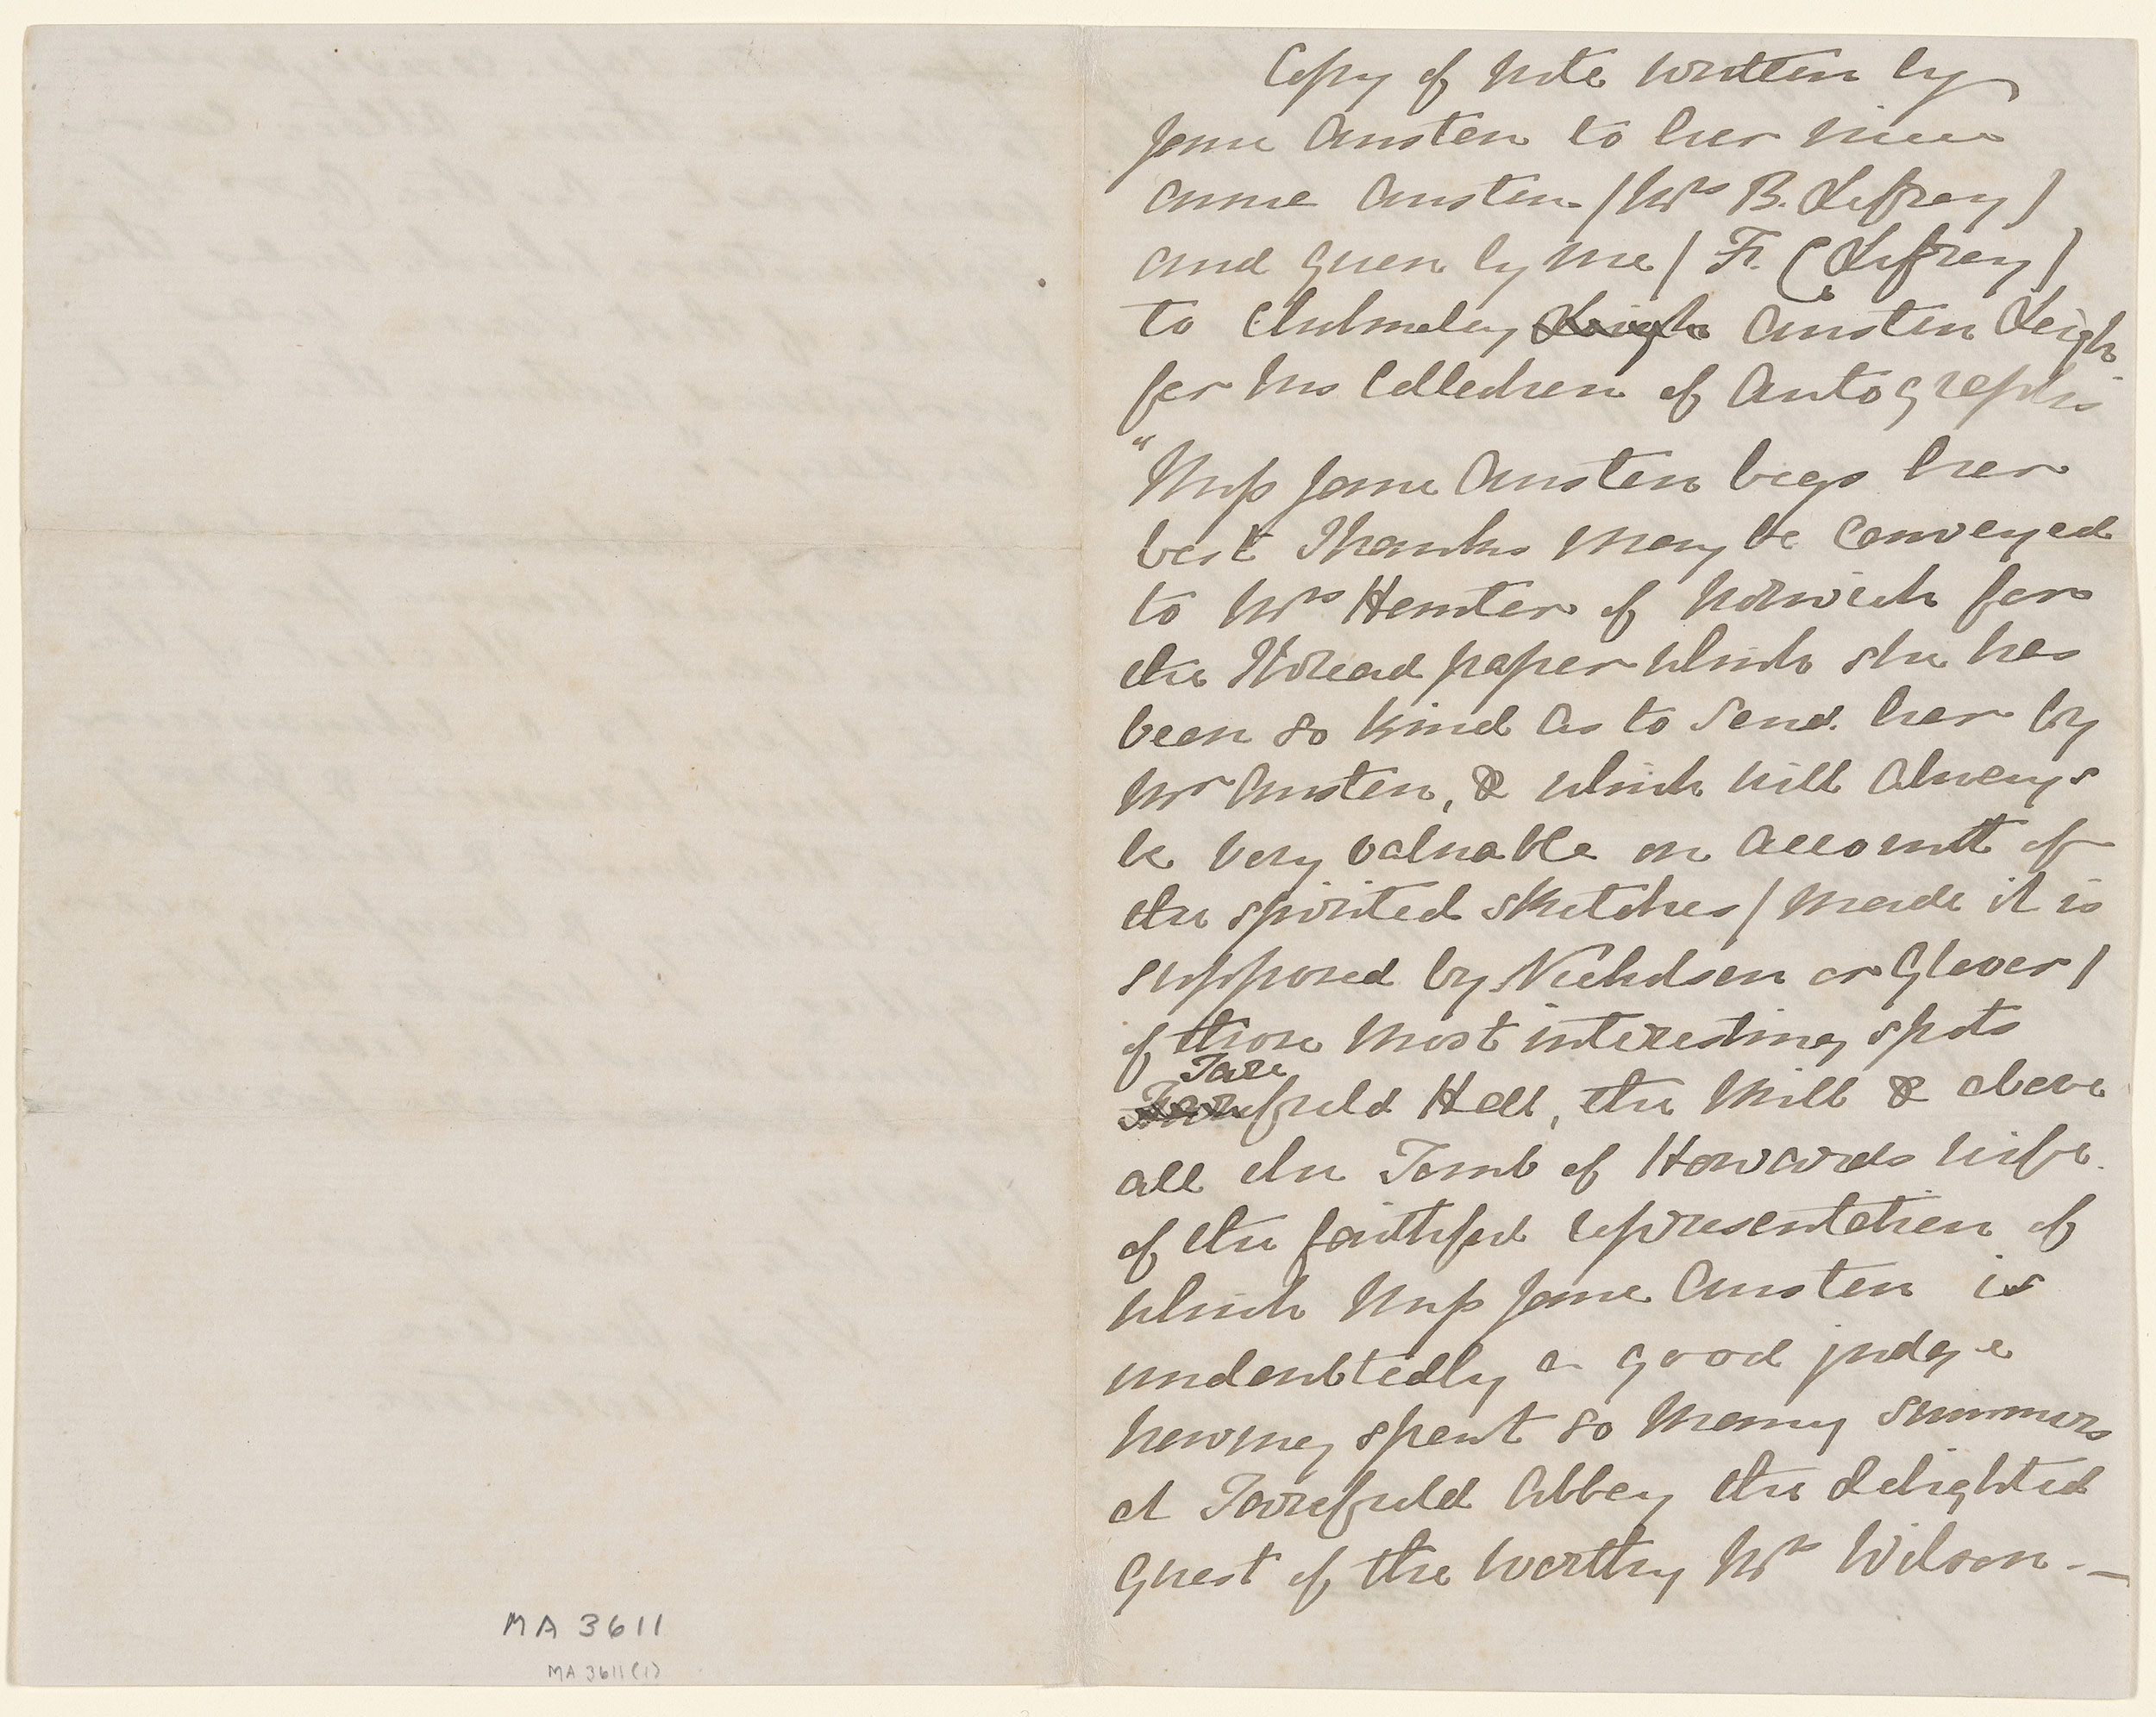 MA 3611
MA 3611(1)
Copy of note written by
Jane Austen to her niece
Anna Austen (Mrs B. Lefroy)
and given by me (F. C. Lefroy)
to Cholmeley Leigh Austen Leigh
for his Collection of Autographs
"Miss Jane Austen begs her
best Thanks may be conveyed
to Mrs Hunter of Norwich for
the Thread paper which she has
been so kind as to send her by
Mr Austen, & which will always
be very valuable on account of
the spirited sketches (made it is
supposed by Nicholson or Glover)
of those most interesting spots
Tarefield Hall, the Mill & above
all the Tomb of Howards wife.
of the faithful representation of
which Miss Jane Austen is
undoubtedly a good judge
having spent so many summers
at Tarefield Abbey the delighted
guest of the worthy Mrs Wilson. —